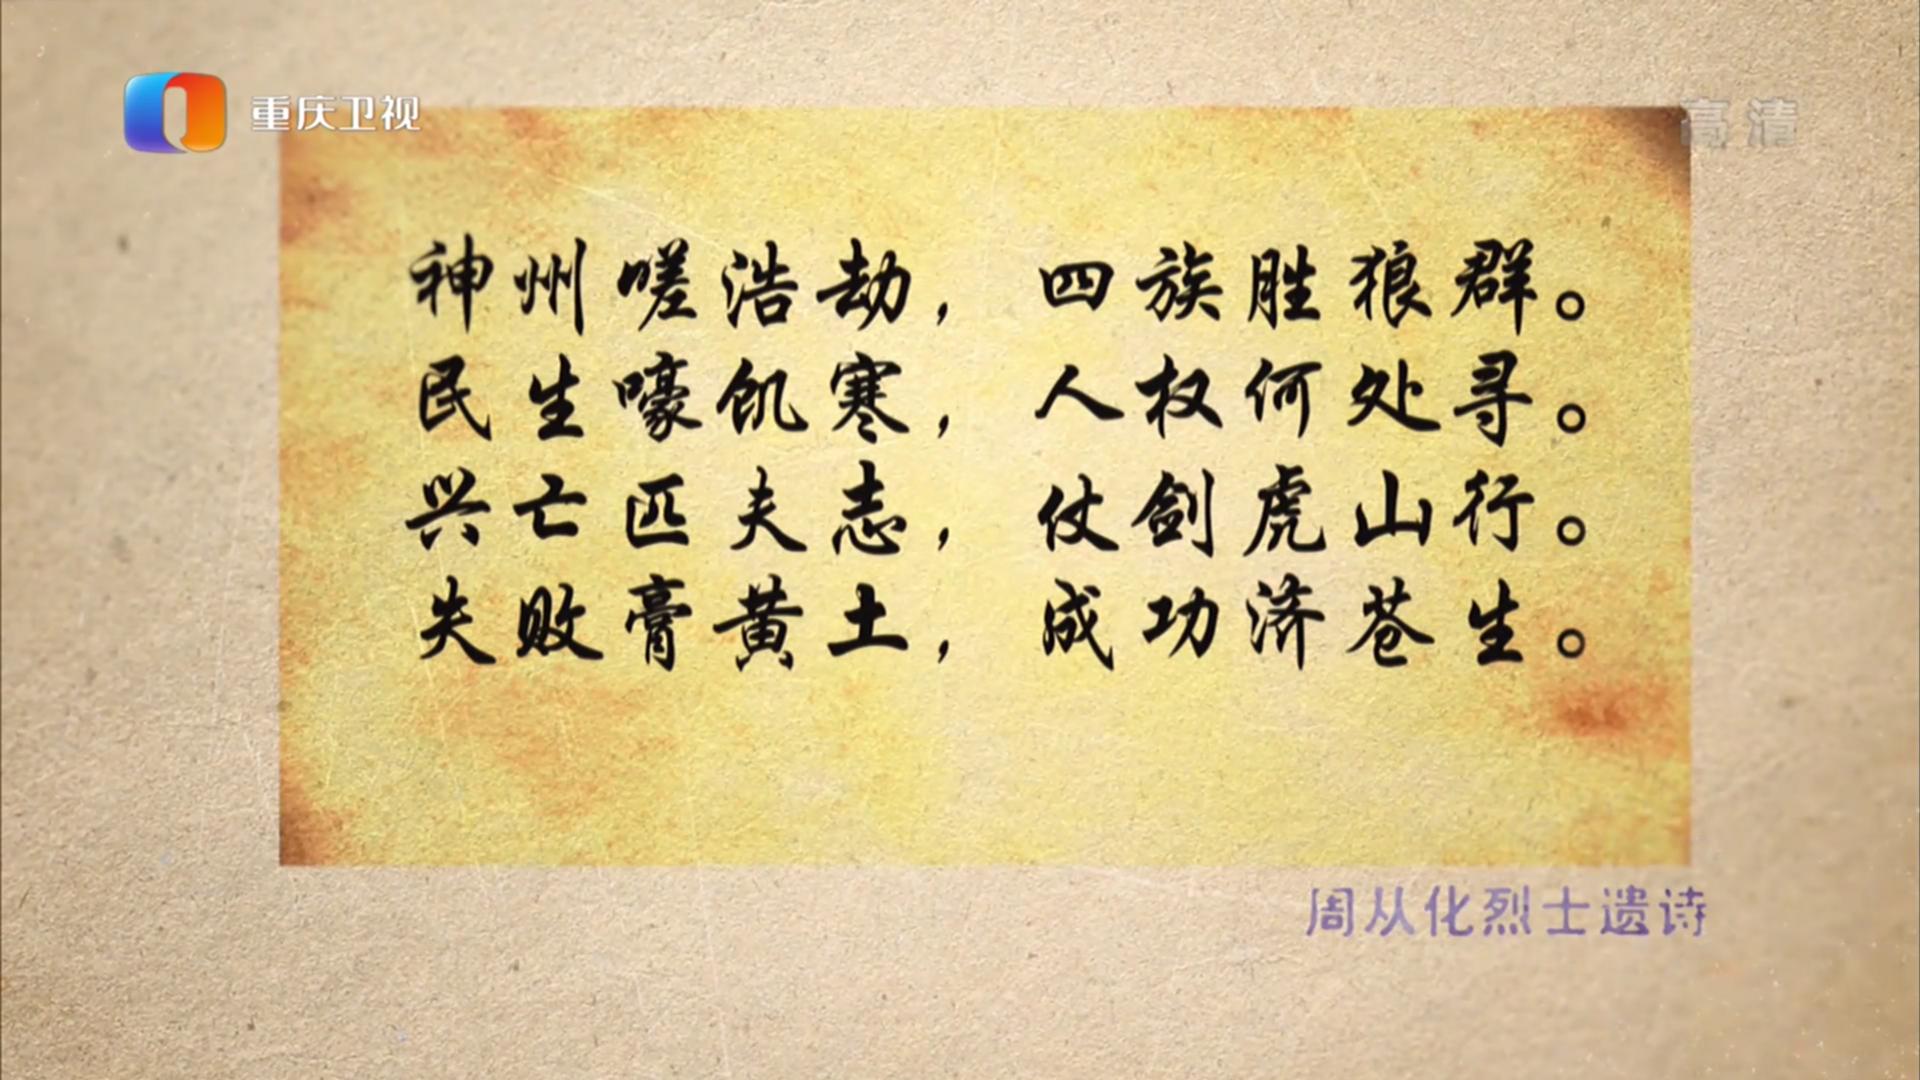 重庆卫视
高清
神州嗟浩劫，四族胜狼群。
民生嚎饥寒，人权何处寻。
兴亡匹夫志，仗剑虎山行。
失败膏黄土，成功济苍生。
周从化烈士遗诗